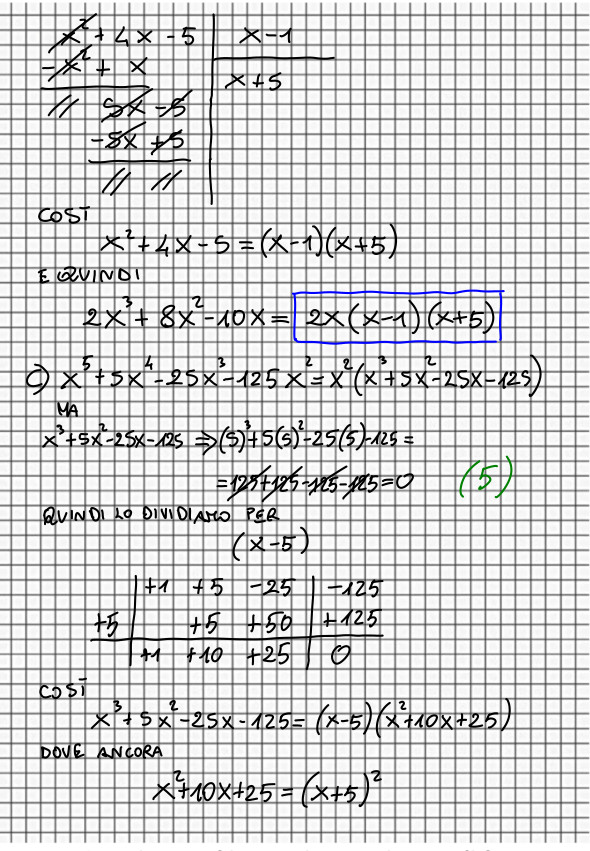 x² + 4x - 5 | x - 1
-x² + x | x + 5
// 5x - 5
-5x + 5
// //
COSÌ
x² + 4x - 5 = (x-1)(x+5)
E QUINDI
2x³ + 8x² - 10x = 2x(x-1)(x+5)
C) x⁵ + 5x⁴ - 25x³ - 125x² = x²(x³ + 5x² - 25x - 125)
MA
x³ + 5x² - 25x - 125 ⇒ (5)³ + 5(5)² - 25(5) - 125 =
= 125 + 125 - 125 - 125 = 0 (5)
QUINDI LO DIVIDIAMO PER
(x-5)
| +1 +5 -25 | -125
+5 | +5 +50 | +125
| +1 +10 +25 | 0
COSÌ
x³ + 5x² - 25x - 125 = (x-5)(x² + 10x + 25)
DOVE ANCORA
x² + 10x + 25 = (x+5)²